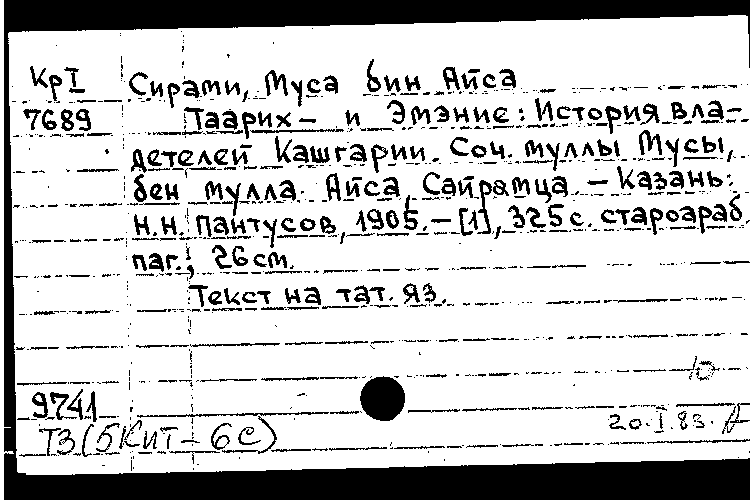 КрI Сирами, Муса бин Айса
7689 Таарих- и Эмэние: История вла-
детелей Кашгарии. Соч. муллы Мусы,
бен мулла. Айса, Сайрамца. - Казань:
Н.Н. Пантусов, 1905. - [1], 325 с. староараб.
паг.; 26 см.
Текст на тат. яз.
10
9741
20.I.83.
Т3(5Кит-6С)